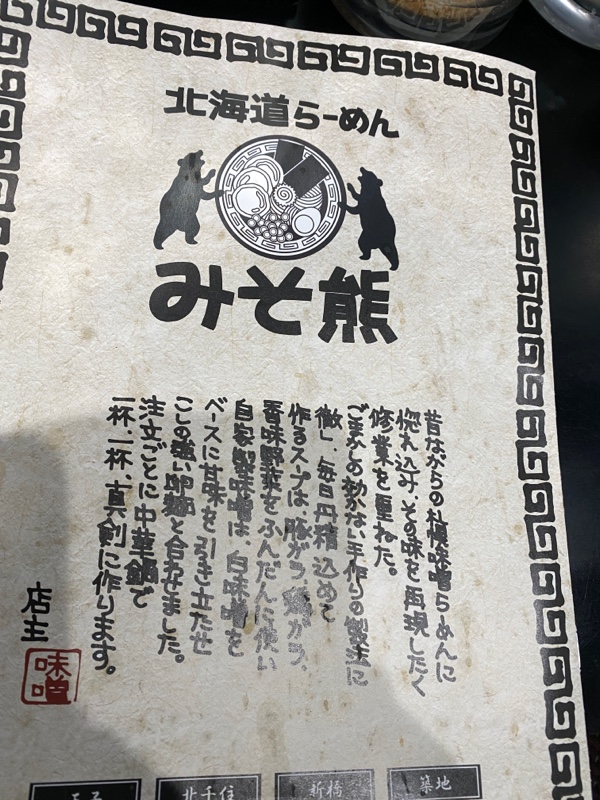 北海道らーめん
みそ熊
昔ながらの札幌味噌らーめんに
惚れ込み、その味を再現したく
修業を重ねた。
ごまかしの効かない手作りの製法に
徹し、毎日丹精込めて
作るスープは、豚ガラ、鶏ガラ、
香味野菜をふんだんに使い
自家製味噌は、白味噌を
ベースに甘味を引き立たせ
こしの強い卵麺と合わせました。
注文ごとに中華鍋で
一杯、一杯、真剣に作ります。
店主
味噌
北千住
新橋
築地